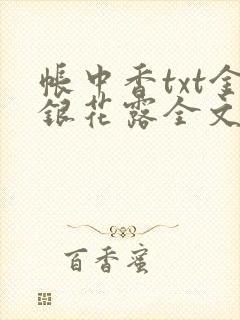 帐中香txt金
银花露全文
百香蜜